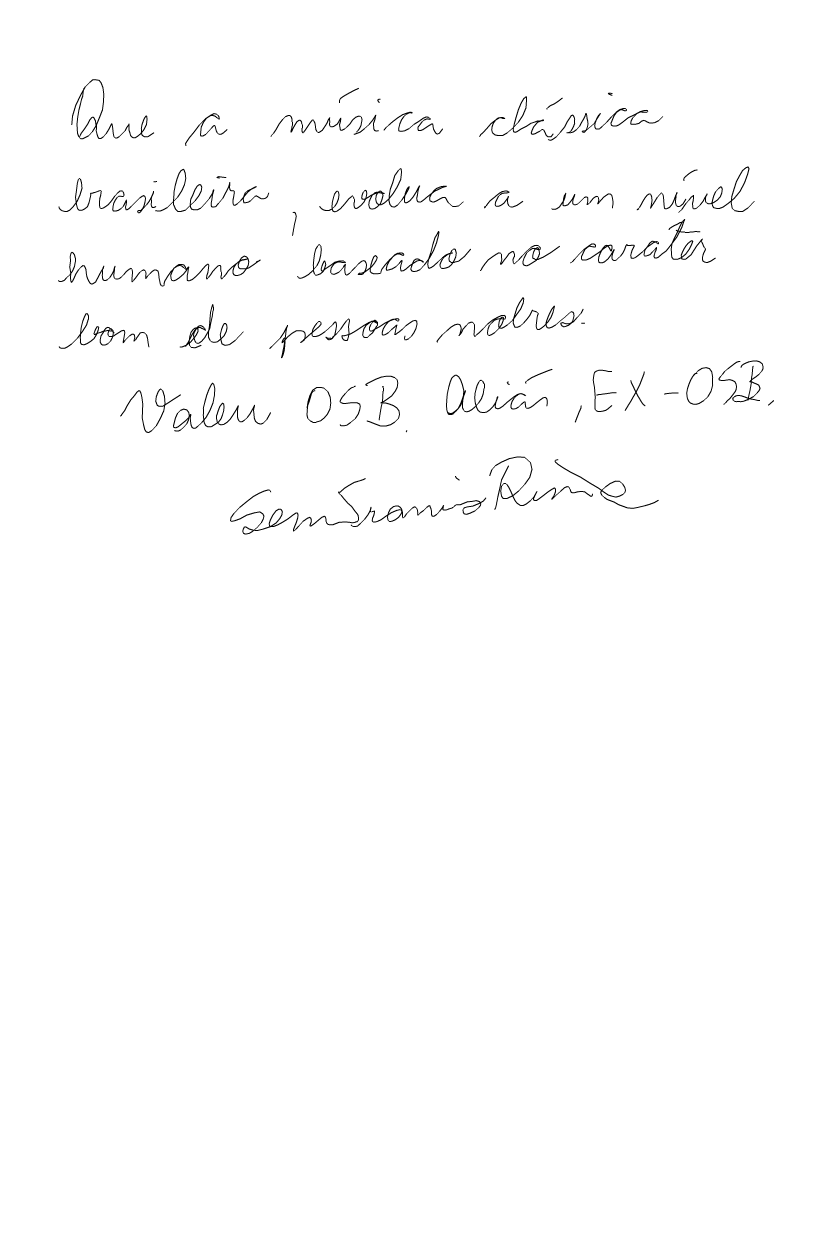 Que a música clássica
brasileira, evolua a um nível
humano baseado no carater
bom de pessoas nobres.
Valeu OSB. Aliás, EX-OSB.